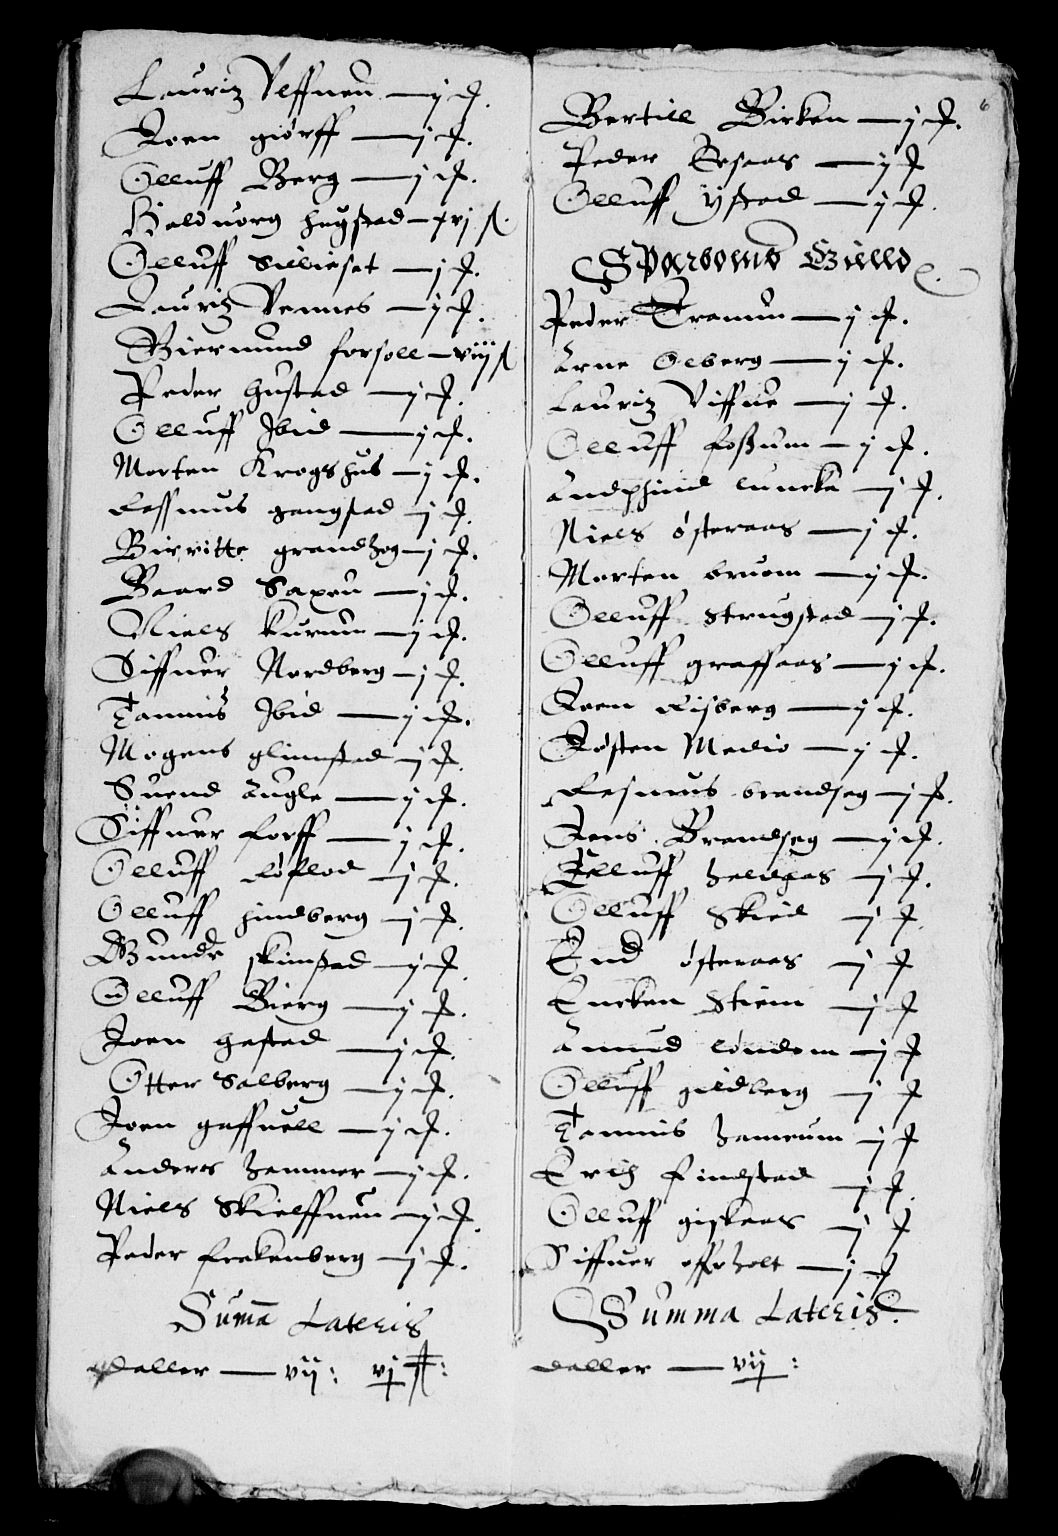 Lauritz Veffnen — j ort.
Joen giørff — j ort.
Olluff Berg — j ort.
Haldvorg hegstad — xvj ß.
Olluff Sillieset — j ort.
Lauritz Vennes — j ort.
Biermund forsoll — viij ß
Peder hustad — j ort.
Olluff Ibid — j ort.
Morten Krogshus — j ort.
Rassmus gangstad — j ort.
Birritte grandhog — j ort.
Baard Saxen — j ort.
Niels kurum — j ort.
Siffuer Nordberg — j ort.
Tammis Ibid — j ort.
Mogens glimstad — j ort.
Suend Augle — j ort.
Siffuer forff — j ort.
Olluff Røflod — j ort.
Olluff hindberg — j ort.
Gunder skimstad — j ort.
Olluff Bierg — j ort.
Joen hestad — j ort.
Otter Salberg — j ort.
Joen gaffuell — j ort.
Anders hammer — j ort.
Niels Skielffuen — j ort.
Peder frakenberg — j ort.
Suma Lateris
daller — vij: vj ß:
6
Bertill Birken — j ort.
Peder Aasaas — j ort
Olluff ystad — j ort.
Sparboms Gield
Peder Tramun — j ort.
Arne Olberg — j ort.
Lauritz Viffue — j ort.
Olluff foßum — j ort.
Andphind luncka — j ort.
Niels østeraas — j ort.
Morten bruom — j ort.
Olluff Strugstad — j ort.
Olluff graffaas — j ort.
Joen Risberg — j ort.
Jøsten Medio — j ort.
Rasmus brandseg — j ort.
Jens Brandseg — j ort.
Elluff haldaas — j ort.
Olluff Skied — j ort.
End østeraas — j ort
Encken Stiem — j ort
Amund londom — j ort
Olluff gildberg — j ort
Tammis hamrum — j ort
Erich findstad — j ort.
Olluff giskaas — j ort
Siffuer offrholt — j ort
Summa Lateris.
daller — vij: